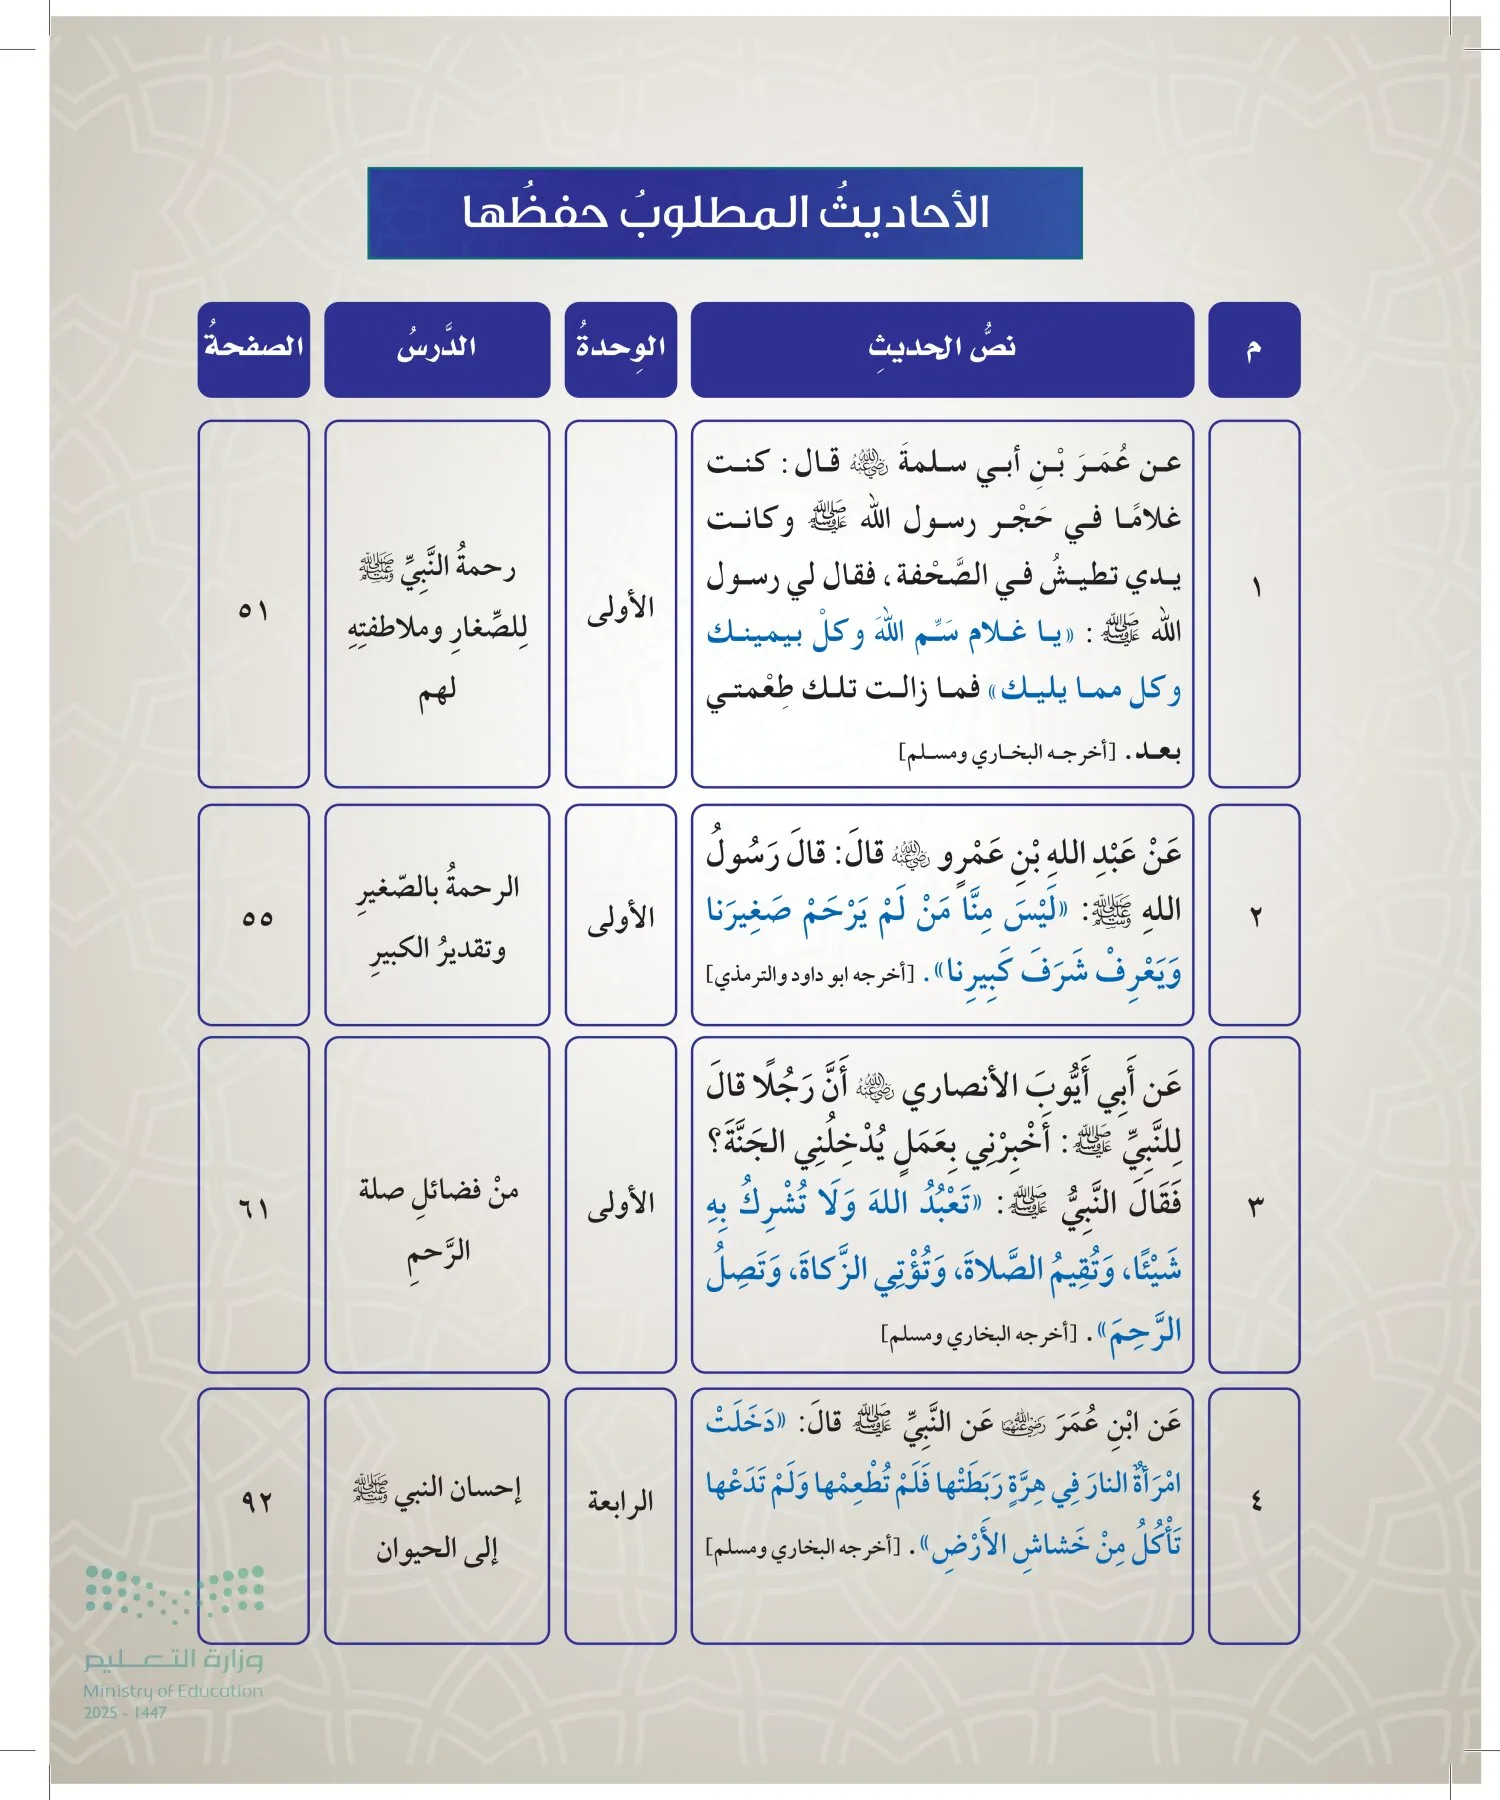 الأحاديثُ المطلوبُ حفظُها
م
نصُّ الحديثِ
الوِحدةُ
الدَّرسُ
الصفحةُ
١
عن عُمَرَ بْنِ أبي سلمةَ رضي الله عنه قال: كنت
غلامًا في حَجْر رسول الله ﷺ وكانت
يدي تطيشُ في الصَّحْفة، فقال لي رسول
الله ﷺ: «يا غلام سَمِّ اللهَ وكلْ بيمينك
وكل مما يليك» فما زالت تلك طِعْمتي
بعد. [أخرجه البخاري ومسلم]
الأولى
رحمةُ النَّبِيِّ ﷺ
لِلصِّغارِ وملاطفتِهِ
لهم
٥١
٢
عَنْ عَبْدِ اللهِ بْنِ عَمْرٍو رضي الله عنه قالَ: قالَ رَسُولُ
اللهِ ﷺ: «لَيْسَ مِنَّا مَنْ لَمْ يَرْحَمْ صَغِيرَنا
وَيَعْرِفْ شَرَفَ كَبِيرِنا». [أخرجه ابو داود والترمذي]
الأولى
الرحمةُ بالصّغيرِ
وتقديرُ الكبيرِ
٥٥
٣
عَن أَبِي أَيُّوبَ الأنصاري رضي الله عنه أَنَّ رَجُلًا قالَ
لِلنَّبِيِّ ﷺ: أَخْبِرْنِي بِعَمَلٍ يُدْخِلُنِي الجَنَّةَ؟
فَقَالَ النَّبِيُّ ﷺ: «تَعْبُدُ اللهَ وَلَا تُشْرِكُ بِهِ
شَيْئًا، وَتُقِيمُ الصَّلاةَ، وَتُؤْتِي الزَّكاةَ، وَتَصِلُ
الرَّحِمَ». [أخرجه البخاري ومسلم]
الأولى
منْ فضائلِ صلة
الرَّحمِ
٦١
٤
عَن ابْنِ عُمَرَ رضي الله عنهما عَن النَّبِيِّ ﷺ قالَ: «دَخَلَتْ
امْرَأَةٌ النارَ فِي هِرَّةٍ رَبَطَتْها فَلَمْ تُطْعِمْها وَلَمْ تَدَعْها
تَأْكُلُ مِنْ خَشاشِ الأَرْضِ». [أخرجه البخاري ومسلم]
الرابعة
إحسان النبي ﷺ
إلى الحيوان
٩٢
وزارة التعليم
Ministry of Education
2025 - 1447